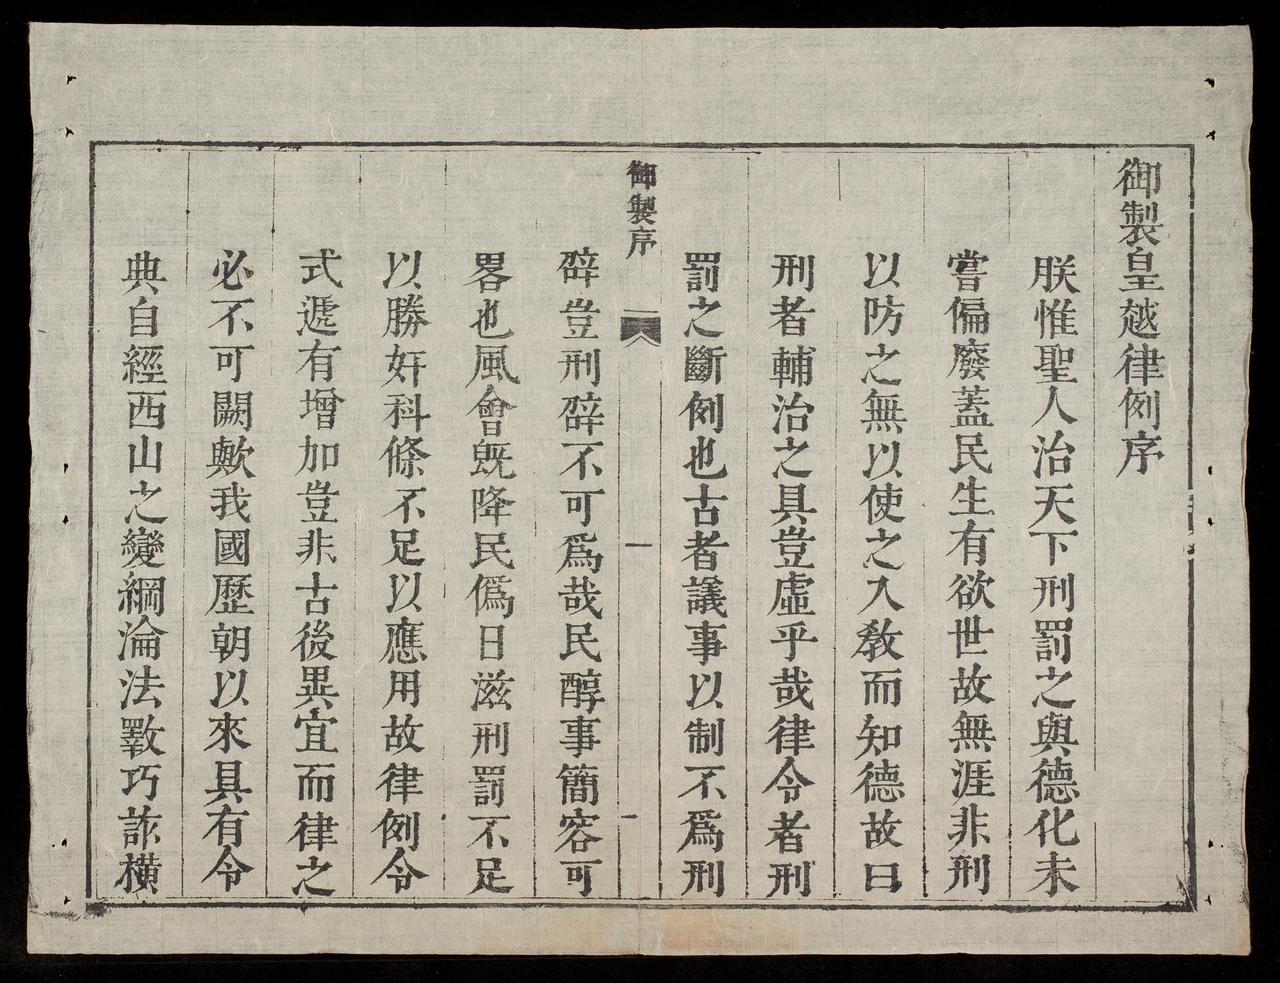 御製皇越律例序
朕惟聖人治天下刑罰之與德化未
嘗偏廢蓋民生有欲世故無涯非刑
以防之無以使之入教而知德故曰
刑者輔治之具豈虛乎哉律令者刑
罰之斷例也古者議事以制不為刑
御製序
一
辟豈刑辟不可為哉民醇事簡容可
畧也風會旣降民僞日滋刑罰不足
以勝奸科條不足以應用故律例令
式遞有增加豈非古後異宜而律之
必不可闕歟我國歷朝以來具有令
典自經西山之變綱淪法斁巧詐橫